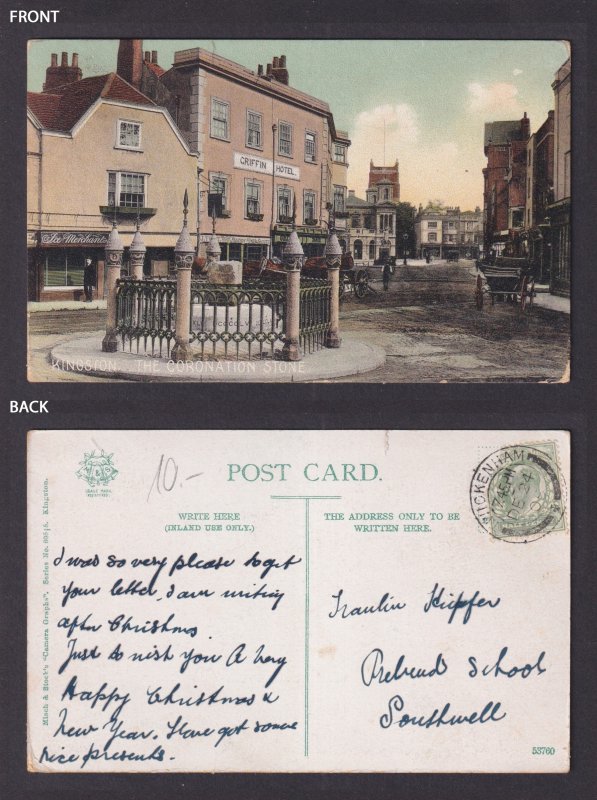 FRONT
GRIFFIN HOTEL.
KINGSTON. THE CORONATION STONE.
BACK
TRADE MARK
10.-
POST CARD.
WRITE HERE
(INLAND USE ONLY.)
THE ADDRESS ONLY TO BE
WRITTEN HERE.
TWICKENHAM
DE 24
Misch & Stock's "Camera Graphs". Series No. Kingston.
I was so very please to get
your letter, I am writing
after Christmas.
Just to wish you A Very
Happy Christmas &
New Year. Have got some
nice presents.
Fraulin Kupfer
School
Southwell
53760